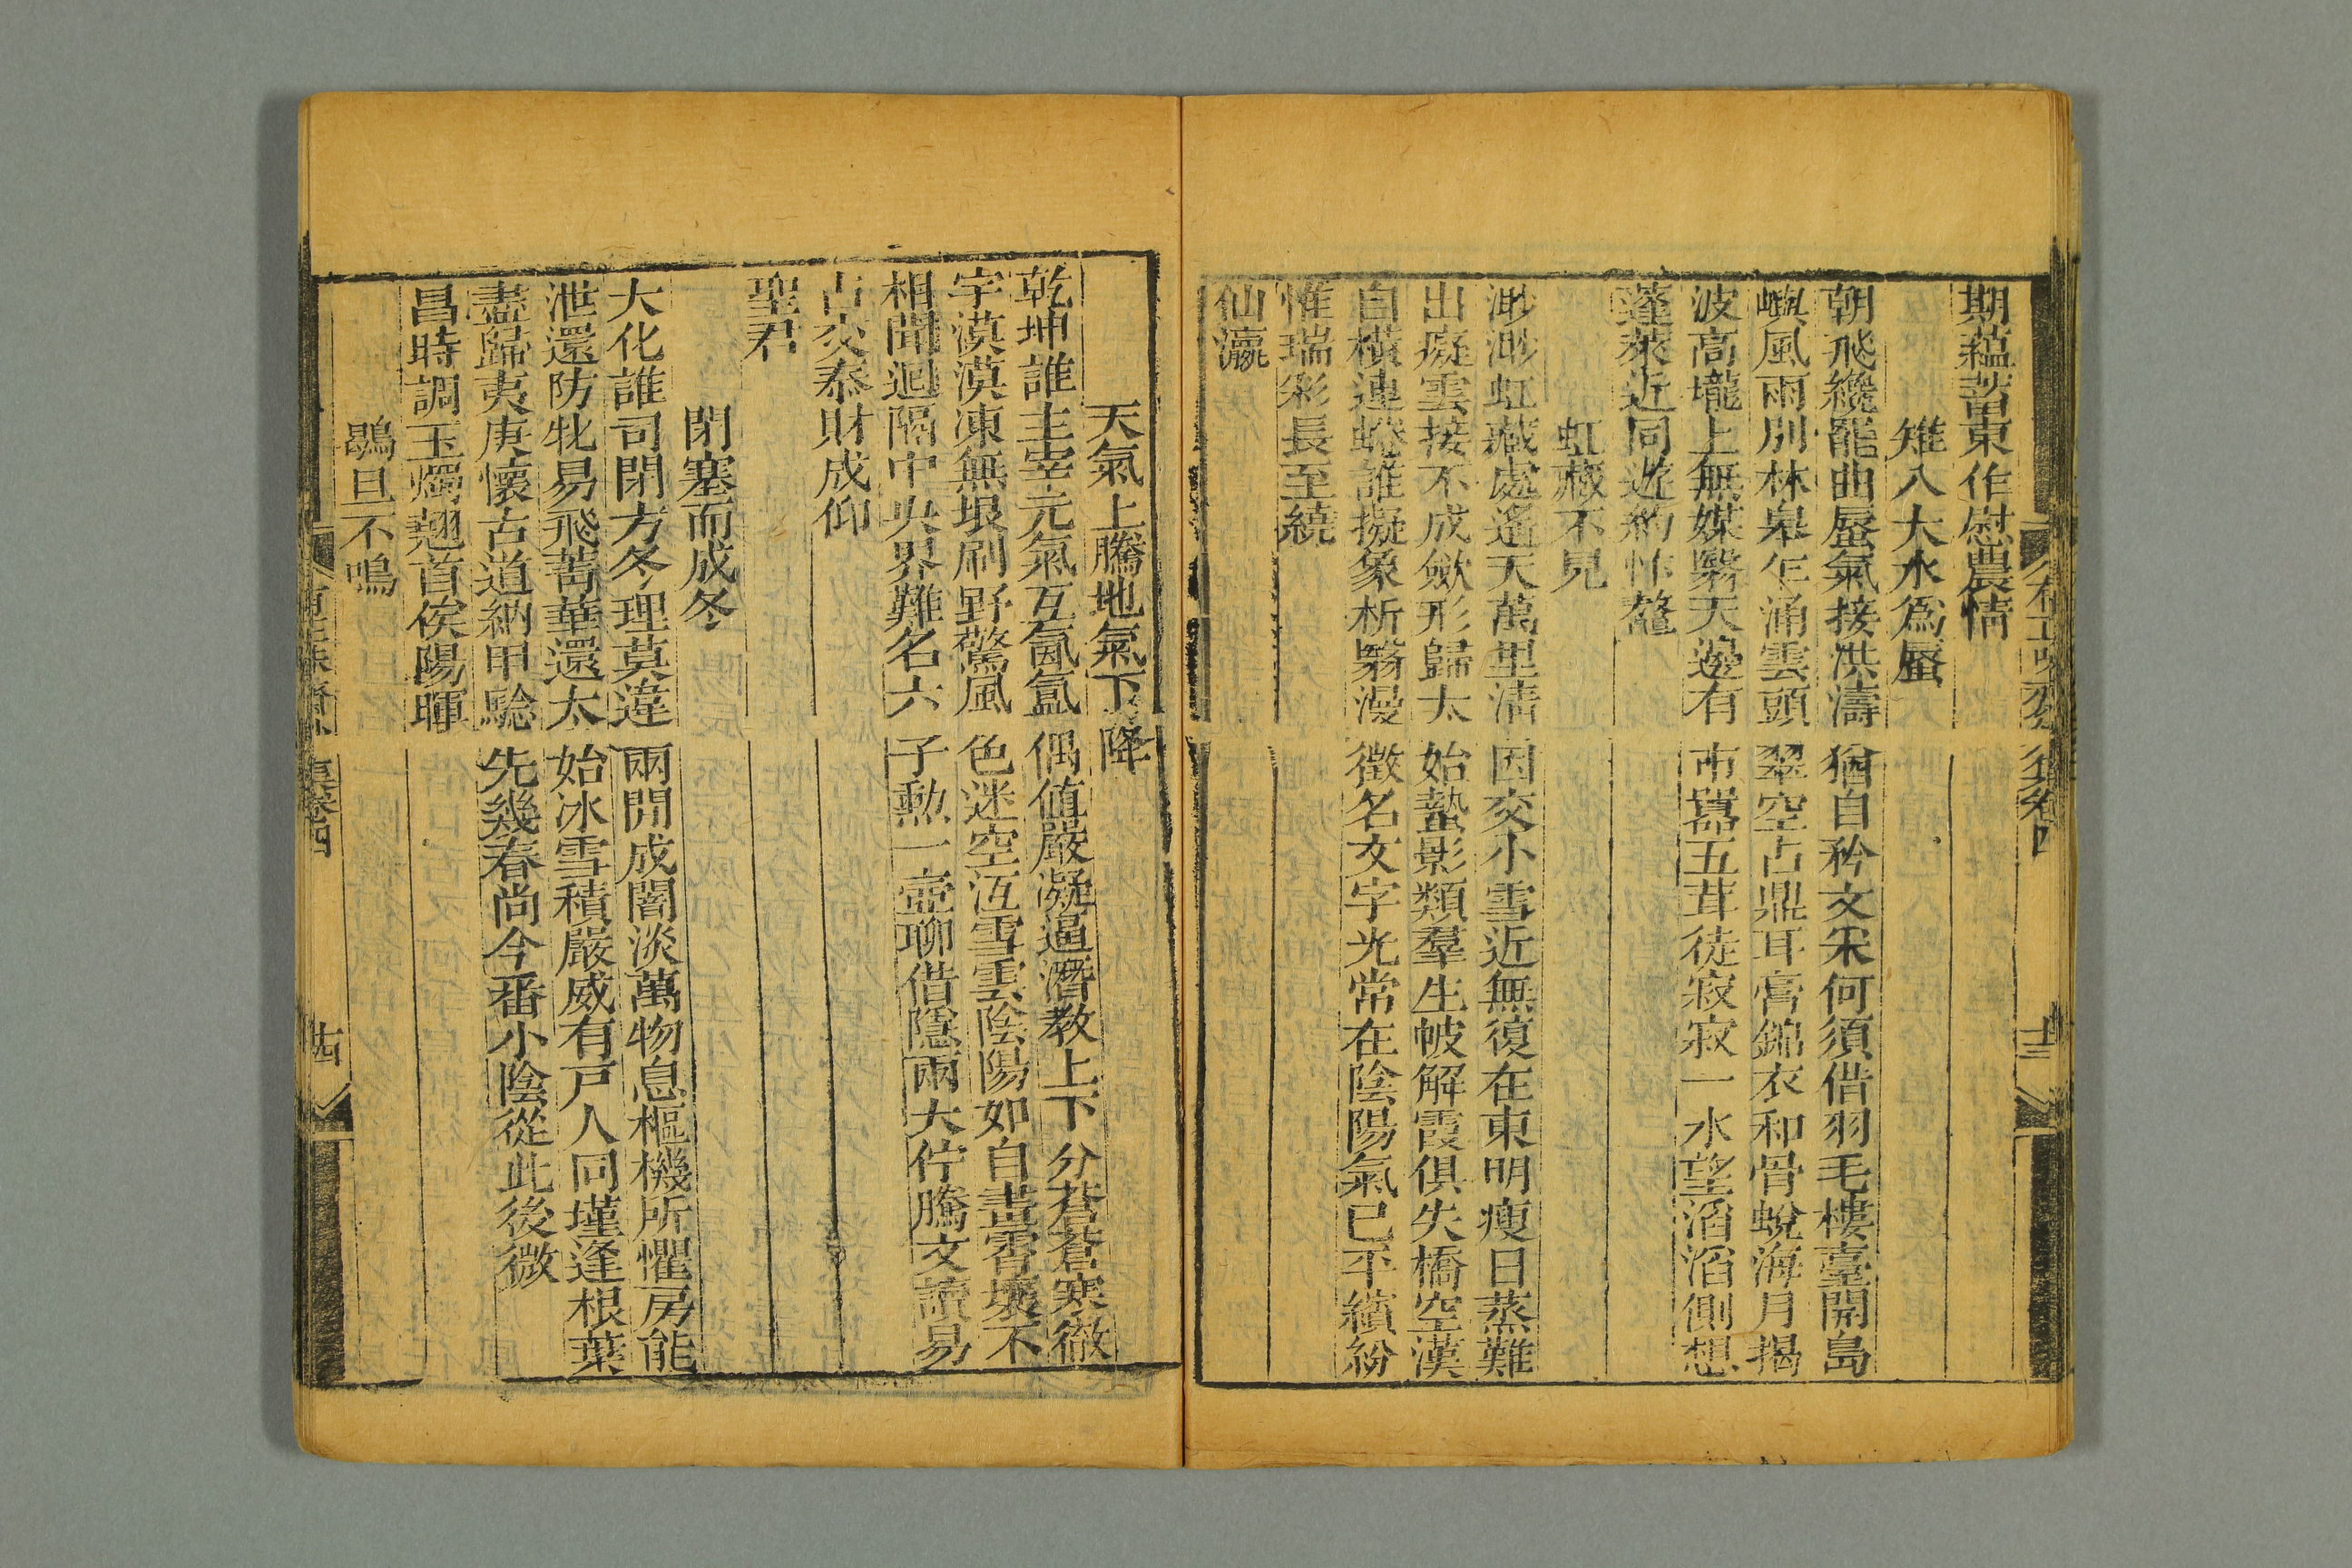 期蘊蓄東作慰農情
雉入大水為蜃
朝飛纔罷曲蜃氣接洪濤猶自矜文采何須借羽毛樓臺開島
嶼風雨別林皋乍涌雲頭翠空占鼎耳膏錦衣和骨蛻海月揭
波高壠上無媒翳天邊有市囂五茸徒寂寂一水望滔滔側想
蓬萊近同遊約怍鼇
虹藏不見
渺渺虹藏處遙天萬里清因交小雪近無復在東明瘦日蒸難
出癡雲接不成斂形歸太始蟄影類羣生帔解霞俱失橋空漢
自橫連蜷誰擬象析翳漫徵名文字光常在陰陽氣已平繽紛
惟瑞彩長至繞
仙瀛
天氣上騰地氣下降
乾坤誰主宰元氣互氤氳偶值嚴凝逼潛教上下分蒼蒼寒徹
宇漠漠凍無垠刷野驚風色迷空沍雪雲陰陽如自畫霄壤不
相聞迴隔中央界難名六子勲一壺聊借隱兩大佇騰文讀易
占交泰財成仰
聖君
閉塞而成冬
大化誰司閉方冬理莫違兩閒成闇淡萬物息樞機所懼房能
泄還防牝易飛菁華還太始冰雪積嚴威有戸人同墐逢根葉
盡歸夷庚懷古道納甲驗先幾春尚今番小陰從此後微
昌時調玉燭翹首俟陽暉
鶡旦不鳴
卷四
十四